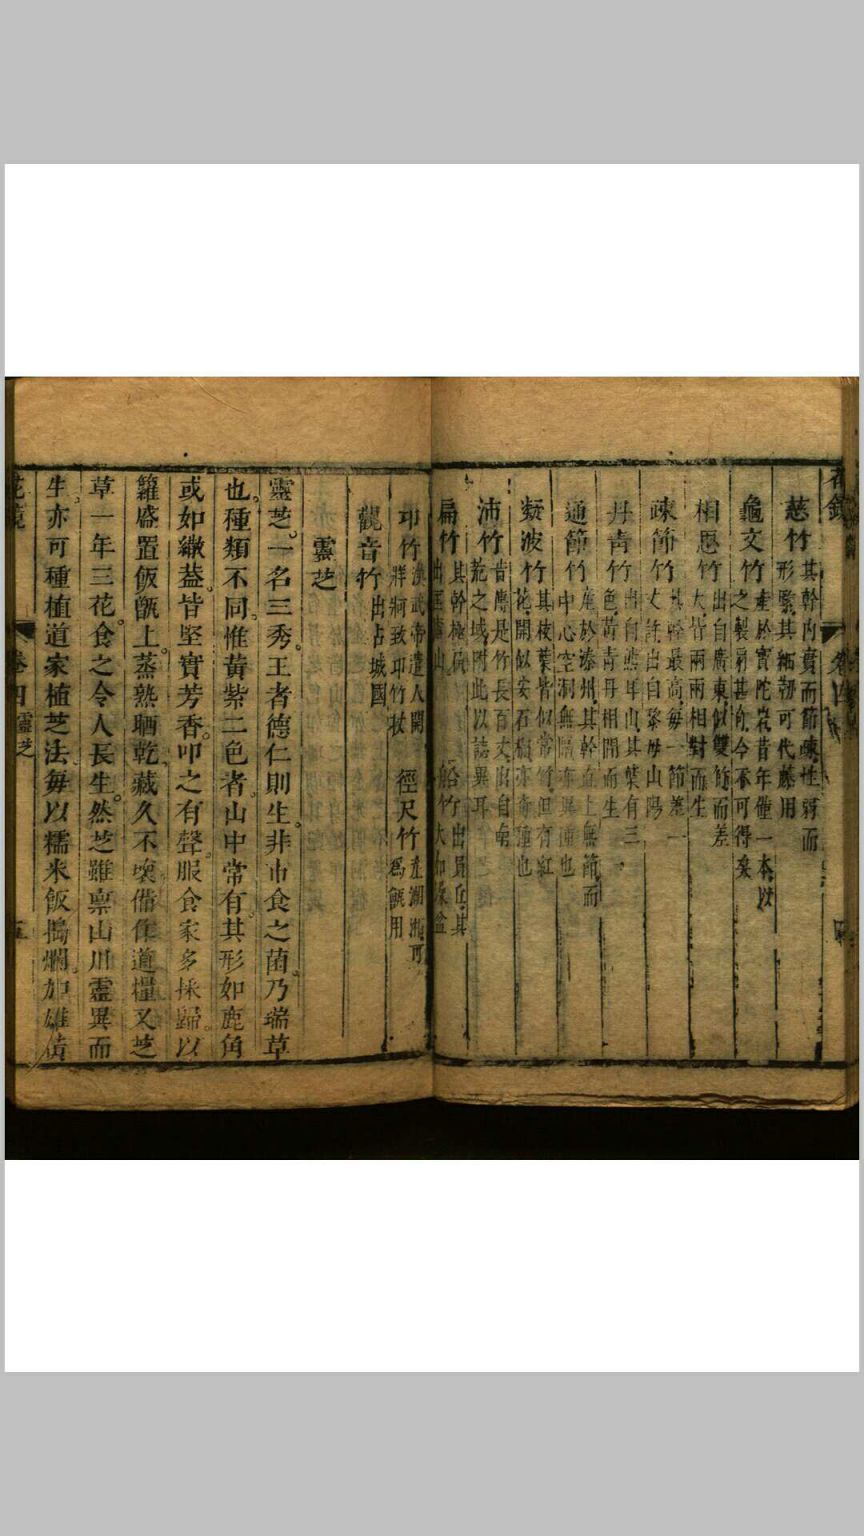 花鏡
慈竹 其幹內實而節疎性弱而形緊其細韌可代藤用
龜文竹 產於寶陀巖昔年僅一本以之製扇甚奇今不可得矣
相思竹 出自廣東似雙竹而差大皆兩兩相對而生
疎節竹 其幹最高每一節差一丈許出自黎母山陽
丹青竹 出自熊耳山其葉有三色黃青丹相間而生
通節竹 產於溱州其幹直上無節而中心空洞無隔亦異種也
凝波竹 其枝葉皆似常竹但有紅花開似安石榴亦奇種也
沛竹 昔麿是竹長百丈出自南荒之域附此以誌異耳
扁竹 其幹極扁出匡廬山 船竹 出員丘其大如
卭竹 漢武帝遣人開牂牁致卭竹杖 徑尺竹 產湖湘可為甑用
觀音竹 出占城國
靈芝
靈芝。一名三秀。王者德仁則生。非市食之菌。乃瑞草
也。種類不同。惟黃紫二色者。山中常有。其形如鹿角
或如繖葢。皆堅實芳香。叩之有聲。服食家多採歸。以
籮盛置飯甑上。蒸熟晒乾。藏久不壞。備作道糧。又芝
草一年三花。食之令人長生。然芝雖稟山川靈異而
生。亦可種植。道家植芝法。每以糯米飯搗爛。加雄黃
花鏡
卷四 靈芝
五